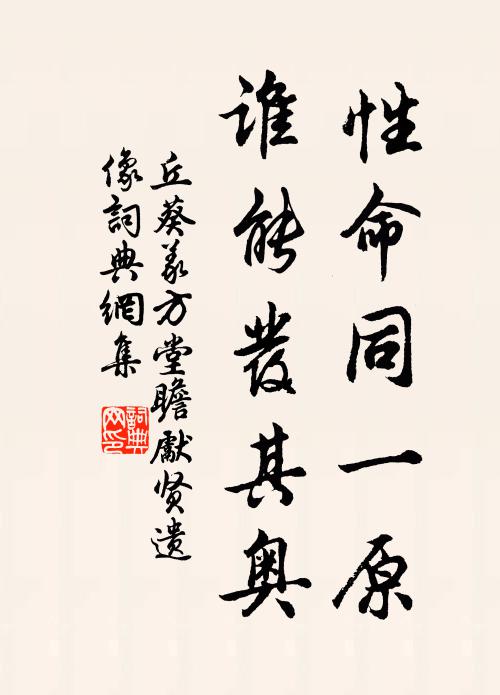 性命同一原
谁能发其奥
丘葵义方堂瞻献贤遗
像词典網集
詞典網印